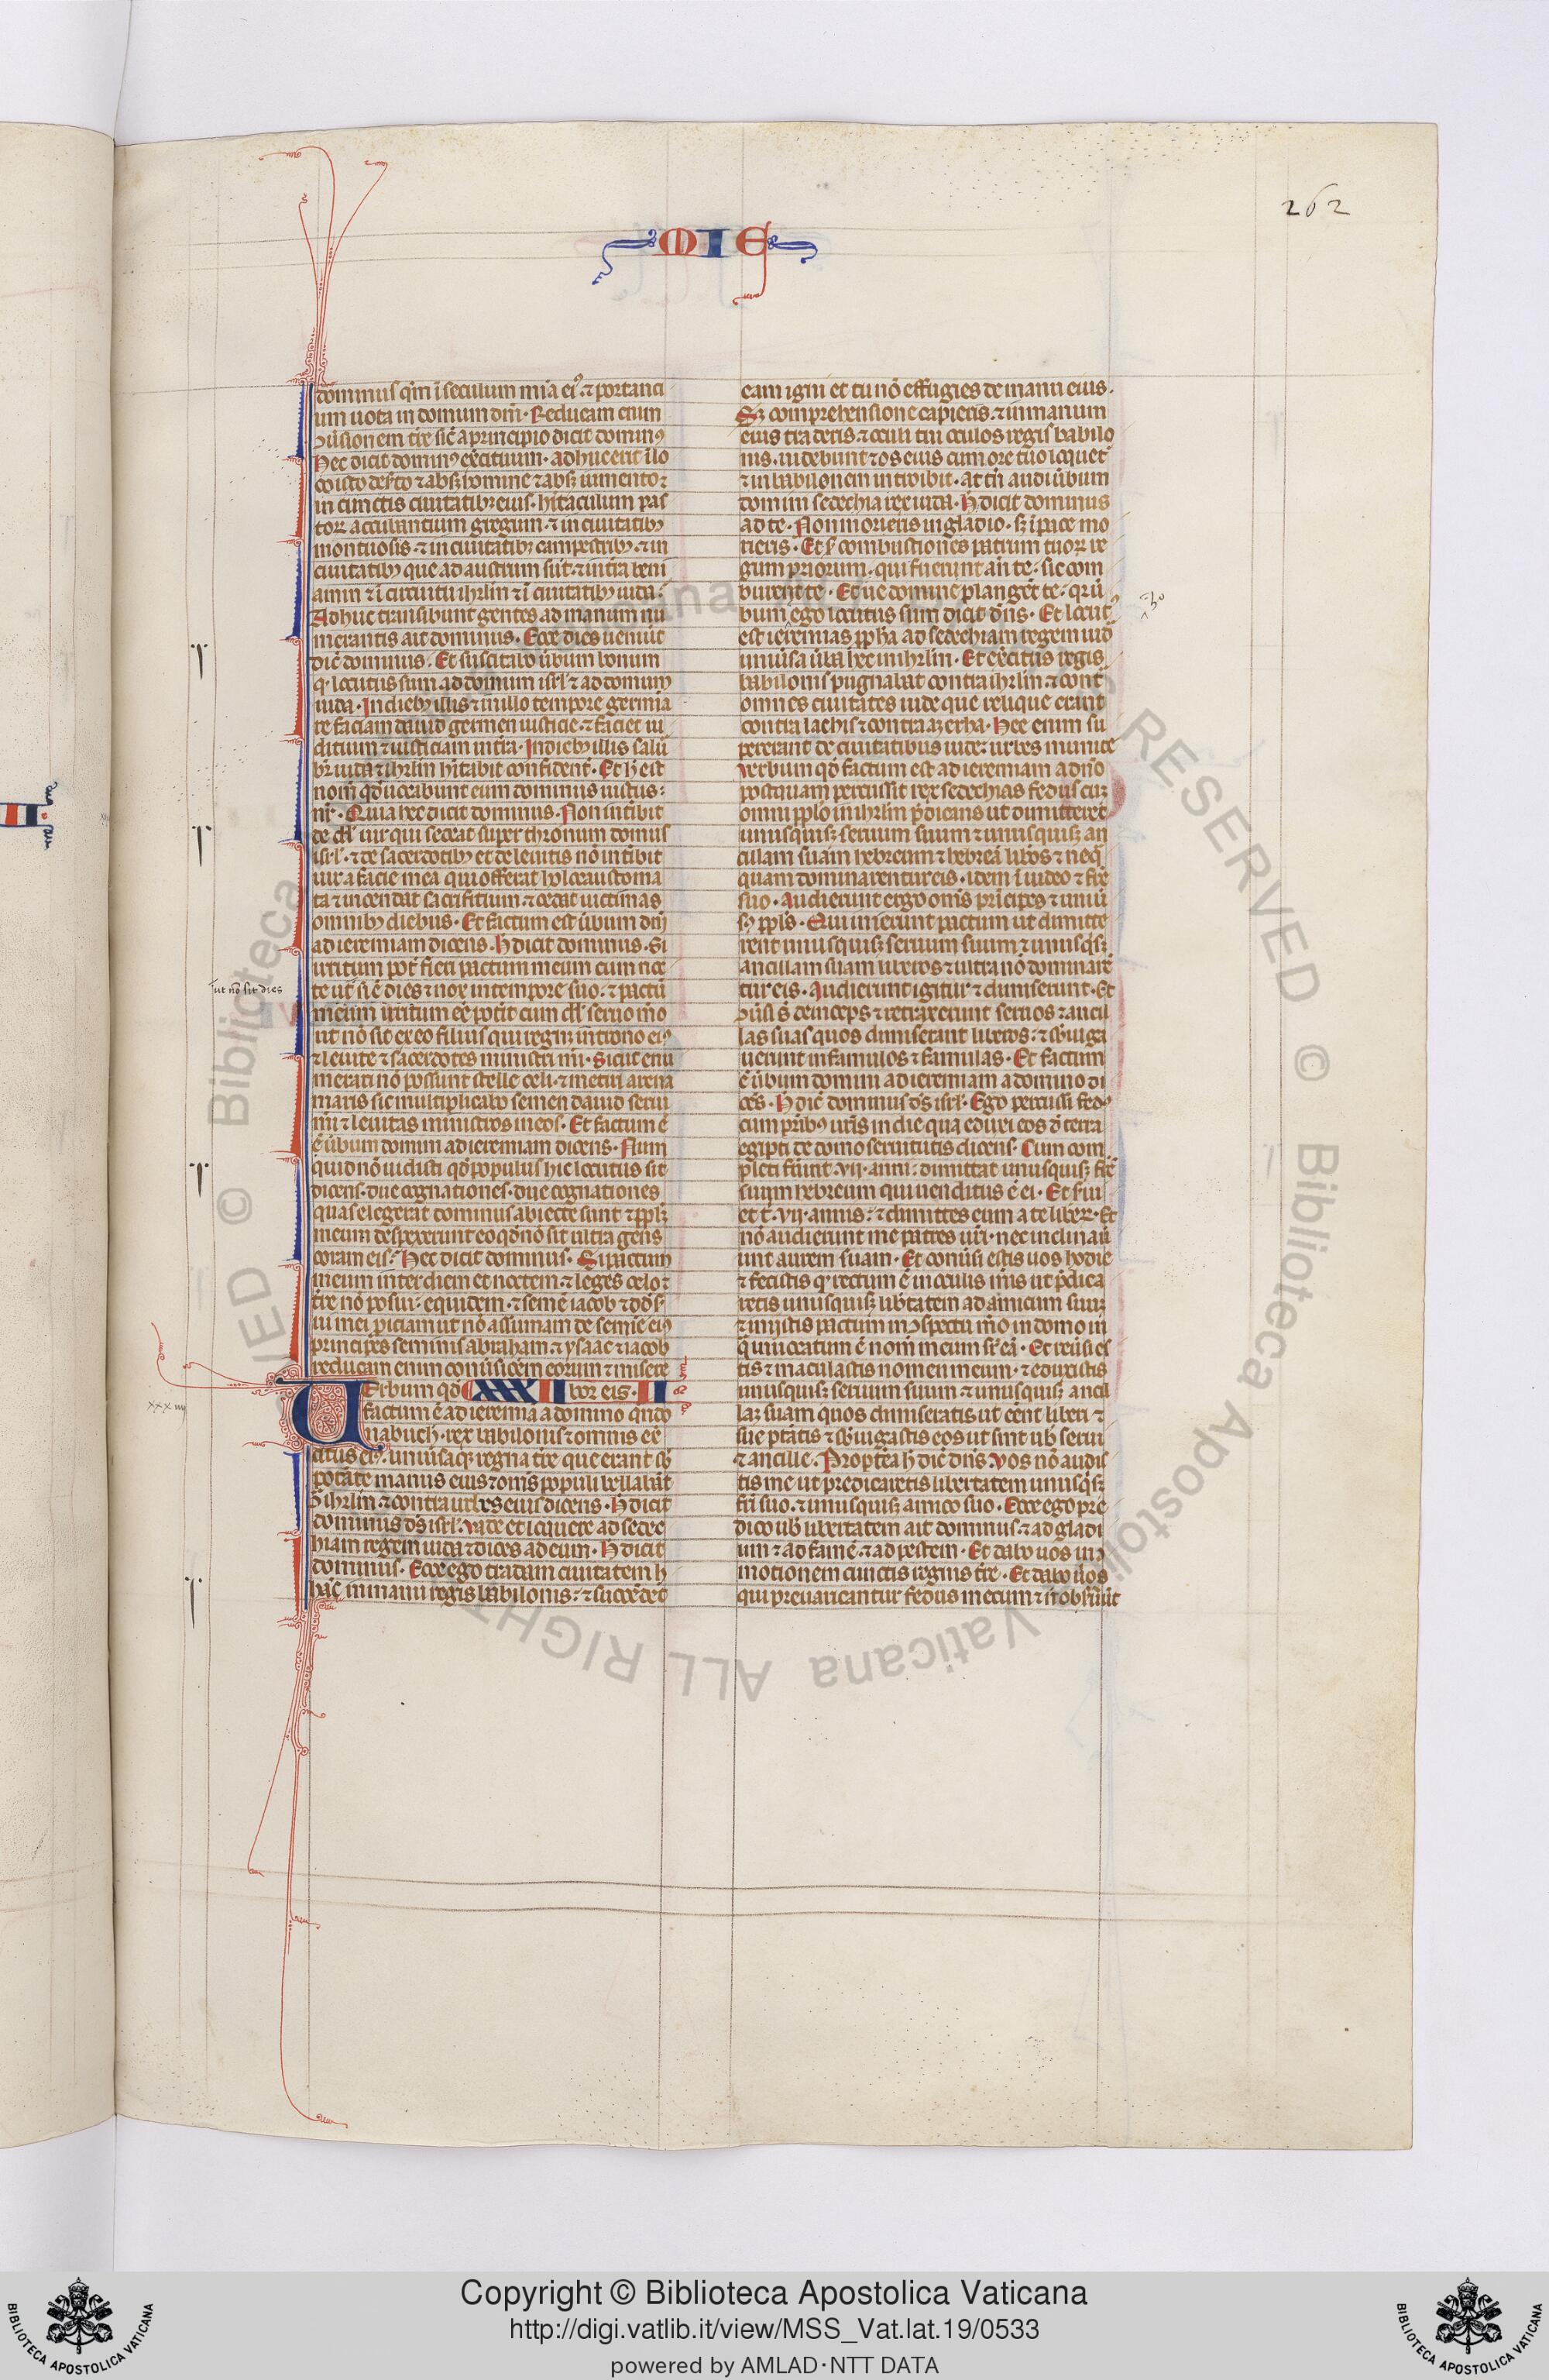 262
MIE
dominus qm̄ ī seculum mīa ei᷒. ⁊ portanti
um uota in domum dn̄i. Reducam enim
ꝯuersionem tr̄e sic̄ a principio dicit domin᷒
Hec dicit domin᷒ exercituum. adhuc erit ī lo
co isto deserto ⁊ absꝫ homine ⁊ absꝫ iumentoꝝ
in cunctis ciuitatibꝫ eius. hītaculum pas
torꝝ accubantium gregum. ⁊ in ciuitatibꝫ
montuosis. ⁊ in ciuitatibꝫ campestribꝫ. ⁊ in
ciuitatibꝫ que ad austrum sūt. ⁊ in tr̄a beni
amin ⁊ ī circuitu ihrlm̄ ⁊ ī ciuitatibꝫ iuda.
Adhuc transibunt gentes ad manum nu
merantis ait dominus. Ecce dies ueniūt
dic̄ dominus. Et suscitabo ūbum bonum
q. locutus sum ad domum isrl̄ ⁊ ad domum
iuda. In diebꝫ illis ⁊ in illo tempore germina
re faciam dauid germen iusticie. ⁊ faciet iu
dicium ⁊ iusticiam in tr̄a. In diebꝫ illis salū
br̄ iuda ⁊ ihrlm̄ hītabit confident̄. Et h̄ est
nom̄ qd̄ uocabunt eum dominus iustus.
nr̄. Quia hec dicit dominus. Non intībit
de dd̄ uir qui sedeat super thronum domus
isrl̄. ⁊ de sacerdotibꝫ et de leuitis nō intībit
uir a facie mea qui offerat holocaustoma
ta ⁊ incendat sacrifitium ⁊ cedat uictimas
omnibꝫ diebus. Et factum est ūbum dn̄i
ad ieremiam dicens. H̄ dicit dominus. Si
irritum pot̄ fieri pactum meum cum noc
te ut̄ sic̄ dies ⁊ nox in tempore suo. ⁊ pactū
ut nō sit dies
meum irritum ēē pot̄it cum dd̄ seruo m̄o
ut nō sit ex eo filius qui regnꝫ in trono ei᷒
⁊ leuite ⁊ sacerdotes ministri mī. Sicut enu
merari nō possunt stelle celi. ⁊ metiri arena
maris sic multiplicabo semen dauid serui
mī ⁊ leuitas ministros meos. Et factum ē
ē ūbum domini ad ieremiam dicens. Num
quid nō uidisti qd̄ populus hic locutus sit
dicens. due cognationes. due cognationes
quas elegerat dominus abiecte sunt ⁊ ppl̄ꝫ
meum despexerunt eo qd̄ nō sit ultra gens
coram eis. Hec dicit dominus. Si pactum
meum inter diem et noctem. ⁊ leges celoꝝ
tr̄e nō posui. equidem. ⁊ semē iacob ⁊ dd̄ s.
ui mei ꝓiciam ut nō assumam de semīe ei᷒
principes seminis abraham ⁊ ysaac ⁊ iacob
reducam enim conuersiōem eorum ⁊ misere
Uerbum qd̄ XXXIIII bor eis.
xxxiiij
factum ē ad ieremiā a domino qn̄do
nabuch̄. rex babilonis ⁊ omnis exē
citus ei᷒. uniuersaqꝫ regna tr̄e que erant sb̄
potāte manus eius ⁊ om̄s populi bellabāt
ꝯ̄ ihrlm̄ ⁊ contra urbes eius dicens. H̄ dicit
dominus ds̄ isrl̄. Vade et loquere ad sedec
hiam regem iuda ⁊ dices ad eum. H̄ dicit
dominus. Ecce ego tradam ciuitatem h
hāc in manu regis babilonis. ⁊ succēdet
eam igni et tu nō effugies de manu eius.
Sꝫ comprehensione capieris. ⁊ in manum
eius traderis. ⁊ oculi tui oculos regis babilo
nis. uidebunt ⁊ os eius cum ore tuo loquet᷑
⁊ in babilonem introibit. at tn̄ audi ūbum
domini sedechia rex iuda. H̄ dicit dominus
ad te. Non morieris in gladio. sꝫ ī pace mo
rieris. Et s. combustiones patrum tuoꝝ re
gum priorum. qui fuerunt an̄ te. sic com
burent te. Et ue domine plangēt te. qr ū
bum ego locutus sum dicit dn̄s. Et locut᷒
est ieremias ppha ad sedechiam regem iud
uniūsa ūba hec in ihrlm̄. Et exercitus regis
babilonis pugnabat contra ihrlm̄ ⁊ cont̄
omnes ciuitates iude que relique erant
contra lachis ⁊ contra azecha. Hec enim su
pererant de ciuitatibus iude. urbes munite
Verbum qd̄ factum est ad ieremiam a dn̄o
postquam percussit rex sedechias fedus cuꝫ
omni ppl̄o in ihrlm̄ p̄dicans ut dimitteret
unusquisqꝫ seruum suum ⁊ unusquisqꝫ an
cillam suam hebreum ⁊ hebreā lib̄os ⁊ neq̄
quam dominarentur eis. idem ī iudeo ⁊ fr̄e
suo. Audierunt ergo om̄s prīcipes ⁊ uniū
s᷒ ppl̄s. Qui inierunt pactum ut dimitte
rent unusquisqꝫ seruum suum ⁊ unusqsꝫ
ancillam suam liberos ⁊ ultra nō dominarē
tur eis. Audierunt igitur ⁊ dimiserunt. Et
ꝯuersi s̄ deinceps ⁊ retraxerunt seruos ⁊ ancil
las suas quos dimiserant liberos. ⁊ sb̄iuga
uerunt in famulos ⁊ famulas. Et factum
ē ūbum domini ad ieremiam a domino di
cēs. H̄ dic̄ dominus ds̄ isrl̄. Ego percussi fed᷒
cum pr̄ibꝫ ur̄is in die qua eduxi eos d̄ terra
egipti de domo seruitutis dicens. Cum com
pleti fūint .vii. anni. dimittat unusquisqꝫ fr̄ē
suum hebreum qui uenditus ē ei. Et s̄ui
et t̄. vii. annis. ⁊ dimittes eum a te liberꝝ. Et
nō audierunt me patres ur̄i. nec inclinaū
unt aurem suam. Et conūsi estis uos hodie
⁊ fecistis q. rectum ē in oculis mīs ut p̄dica
retis unusquisqꝫ lib̄tatem ad amicum suuꝫ
⁊ inistis pactum in ꝯspectu m̄o in domo in
q̄ inuocatum ē nom̄ meum sr̄ eā. Et reūsi es
tis ⁊ maculastis nomen meum. ⁊ eduxistis
unusquisqꝫ seruum suum ⁊ unusquisqꝫ ancil
laꝫ suam quos dimiseratis ut cēnt liberi ⁊
sue p̄tātis ⁊ sb̄iugastis eos ut sint ub̄ serui
⁊ ancille. Propt̄ea h̄ dic̄ dn̄s. Vos nō audis
tis me ut predicaretis libertatem unusqsꝫ
fr̄i suo. ⁊ unusquisqꝫ amico suo. Ecce ego pre
dico ub̄ libertatem ait dominus. ⁊ ad gladi
um ⁊ ad famē. ⁊ ad pestem. Et dabo uos in ꝯ
motionem cunctis regnis tr̄e. Et dabo uiros
qui preuaricantur fedus meum ⁊ n̄ obs̄ūūt
Copyright © Biblioteca Apostolica Vaticana
http://digi.vatlib.it/view/MSS_Vat.lat.19/0533
powered by AMLAD·NTT DATA
BIBLIOTECA APOSTOLICA VATICANA
BIBLIOTECA APOSTOLICA VATICANA